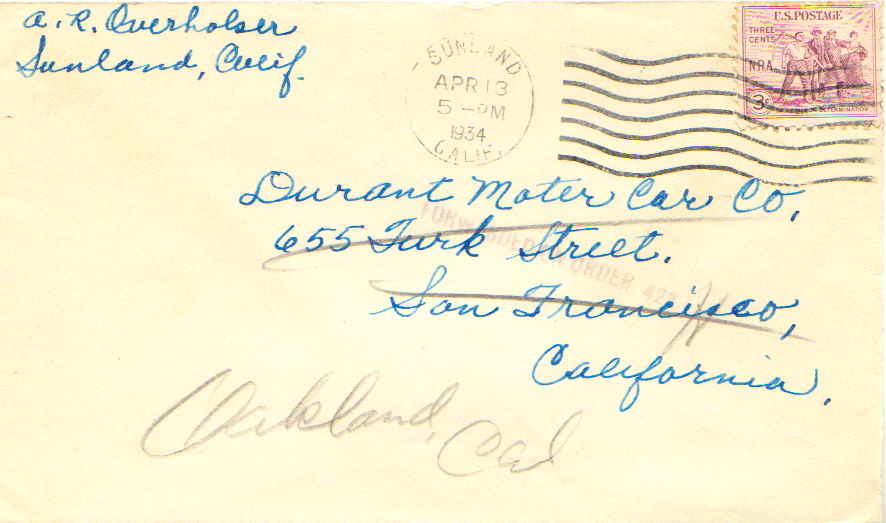 A. R. Overholser
Sunland, Calif.
SUNLAND
APR 13
5 - PM
1934
CALIF.
U.S. POSTAGE
THREE
CENTS
N.R.A.
3¢
Durant Moter Car Co,
655 Turk Street.
San Francisco,
California.
FORWARDED ORDER 427
Oakland, Cal